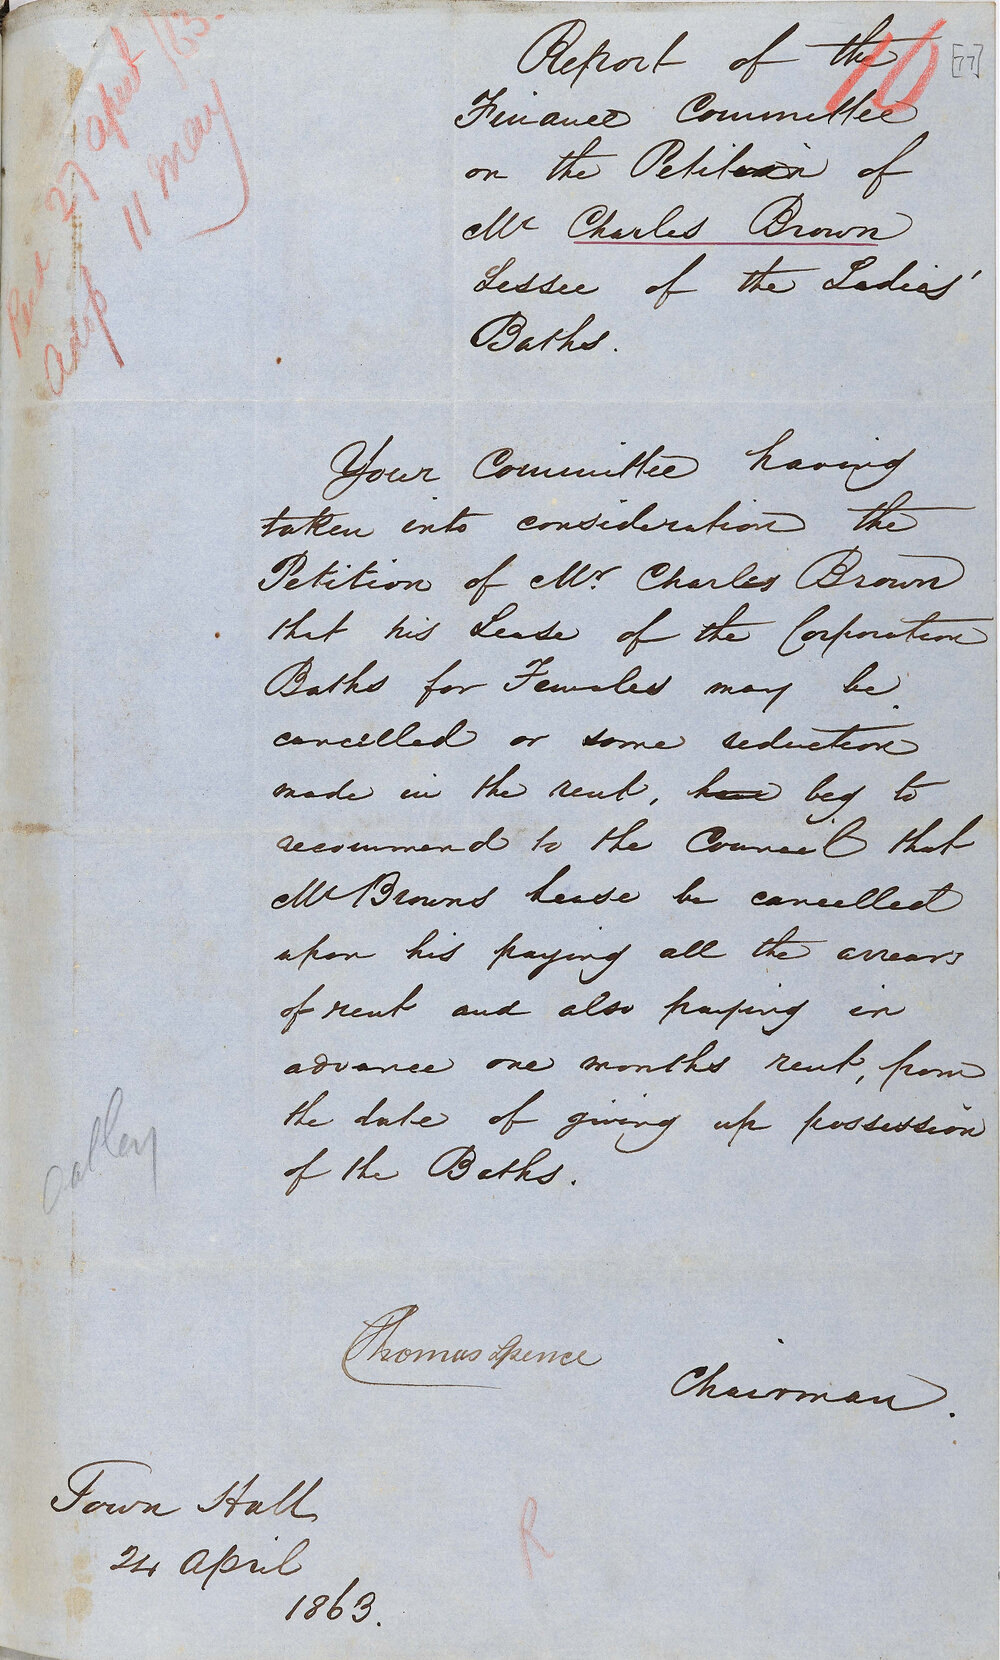 Recd 27 april /63.
Adop 11 May
10
[77]
Report of the
Finance Committee
on the Petition of
Mr Charles Brown
Lessee of the Ladies'
Baths.
Your Committee having
taken into consideration the
Petition of Mr. Charles Brown
that his Lease of the Corporation
Baths for Females may be
cancelled or some reduction
made in the rent, have beg to
recommend to the Council that
Mr Browns lease be cancelled
upon his paying all the arrears
of rent and also paying in
advance one months rent, from
the date of giving up possession
of the Baths.
Thomas Spence
Chairman.
Town Hall
24 April
1863.
R